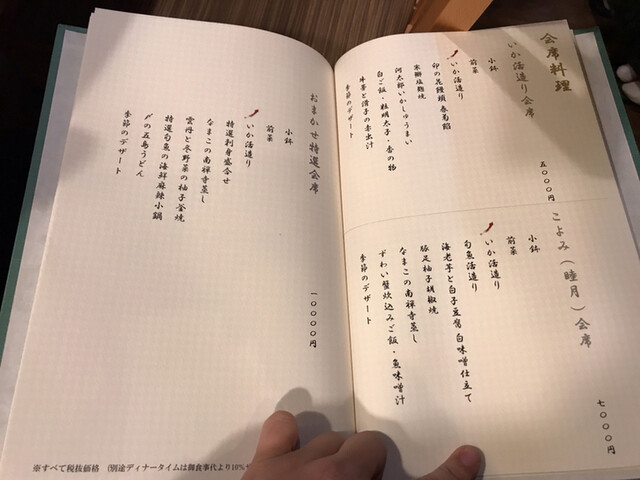 会席料理
いか活造り会席
五〇〇〇円
小鉢
前菜
いか活造り
卯の花饅頭 春菊餡
寒鰤塩麹焼
河太郎いかしゅうまい
白ご飯・粒明太子・香の物
牛蒡と滑子の赤出汁
季節のデザート
こよみ(睦月)会席
七〇〇〇円
小鉢
前菜
いか活造り
旬魚活造り
海老芋と白子豆腐 白味噌仕立て
豚足柚子胡椒焼
なまこの南禅寺蒸し
ずわい蟹炊込みご飯・魚味噌汁
季節のデザート
おまかせ特選会席
一〇〇〇〇円
小鉢
前菜
いか活造り
特選刺身盛合せ
なまこの南禅寺蒸し
雲丹と冬野菜の柚子釜焼
特選旬魚の海鮮麻辣小鍋
〆の五島うどん
季節のデザート
※すべて税抜価格 (別途ディナータイムは御食事代より10%